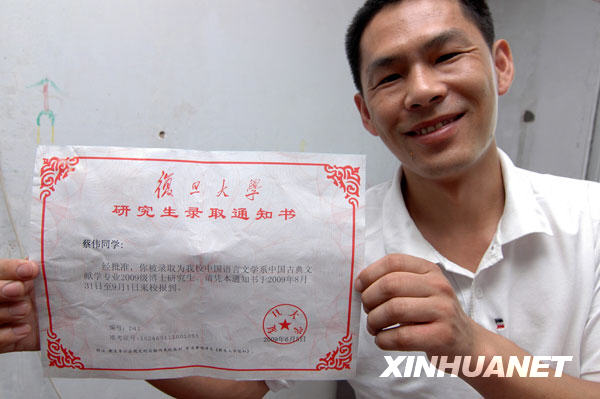 復旦大學
研究生录取通知书
蔡伟同学:
经批准,你被录取为我校中国语言文学系中国古典文
献学专业2009级博士研究生。请凭本通知书于2009年8月
31日至9月1日来校报到。
编号: D41
准考证号:
复旦大学
2009年6月5日
XINHUANET